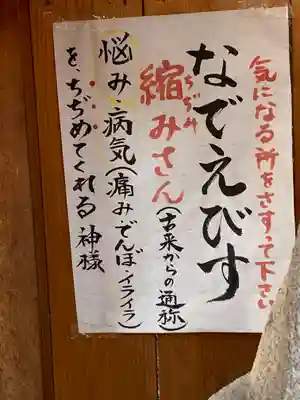 気になる所をさすって下さい
なでえびす
ちぢみ
縮みさん(古来からの通称)
悩み・病気(痛み・でんぼ・イライラ)
を、ちぢめてくれる神様